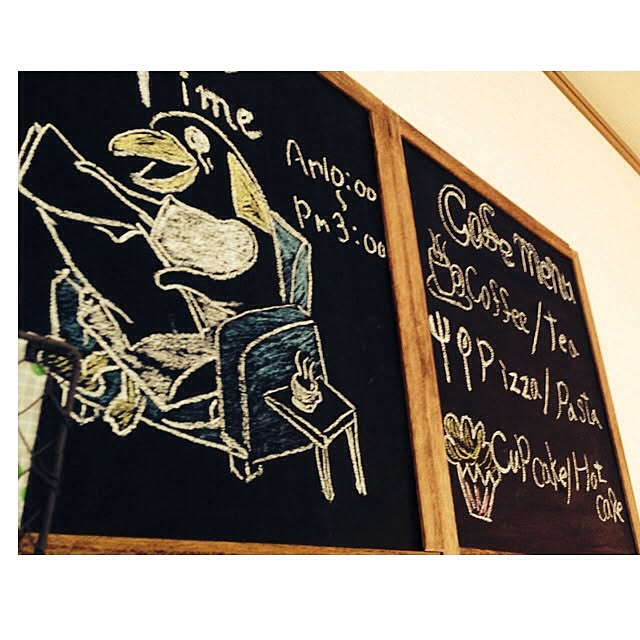 Time
Am10:00
Pm3:00
Cafe menu
Coffee/Tea
Pizza/Pasta
Cupcake/Hot
cake